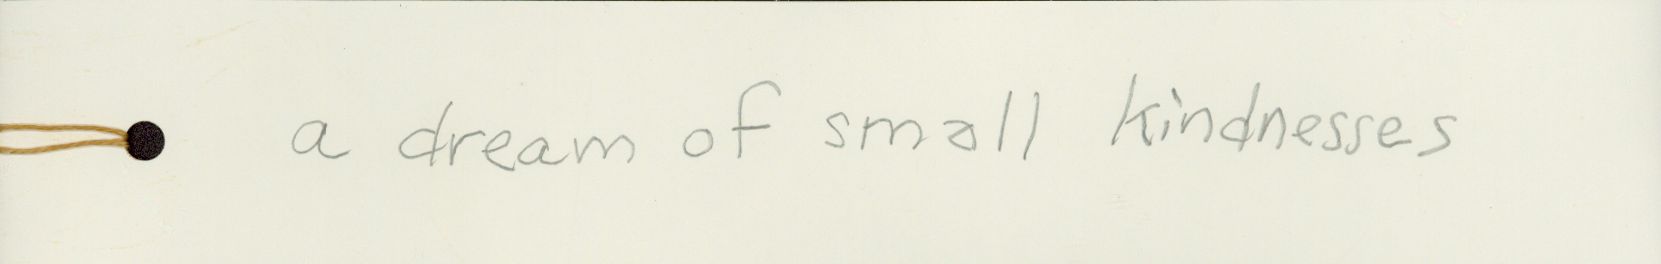 a dream of small kindnesses